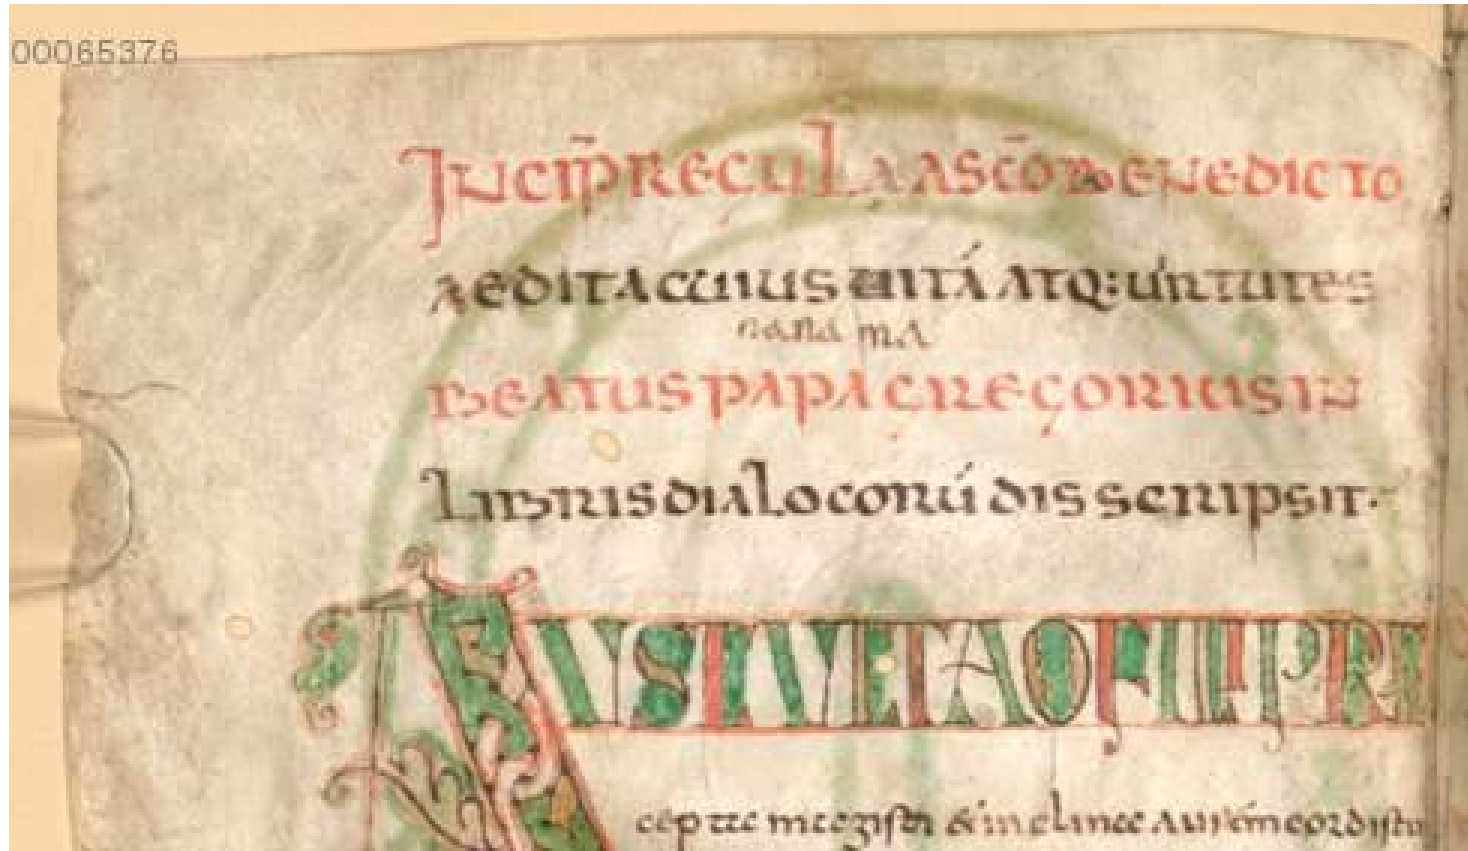 00065376
INCIP̄ REGULA A SC̄O BENEDICTO
AEDITA CUIUS UITÁ ATQ: UIRTUTES
BEATUS PAPA GREGORIUS IN
LIBRIS DIALOGORÚ DISSCRIPSIT·
AUSCULTA O FILI PRE
cepta magistri & inclina aurem cordis tu